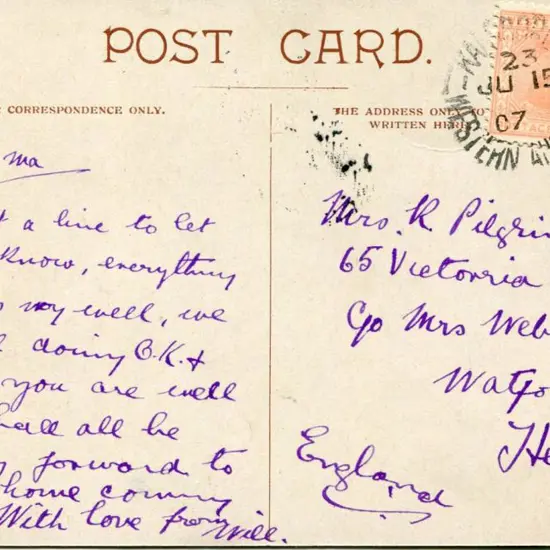 POST CARD.
CORRESPONDENCE ONLY.
THE ADDRESS ONLY TO
WRITTEN HERE
23
JU 15
07
WESTERN AU
ma
a line to let
know, everything
very well, we
doing O.K. &
you are well
all be
forward to
home coming
With love from Will.
Mrs. R Pilgri
65 Victorria
c/o Mrs Web
Watfo
He
England